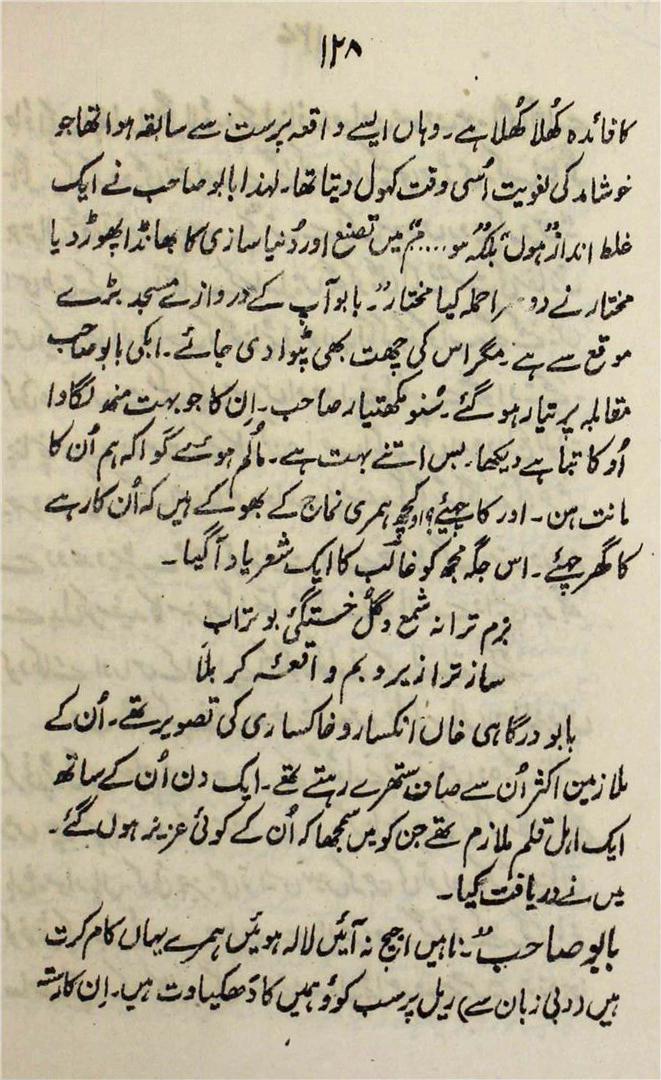 ۱۲۸
کا فائدہ کُھلا کُھلا ہے۔ وہاں ایسے واقعہ پرست سے سابقہ ہوا تھا جو
خوشامد کی لغویت اُسی وقت کھول دیتا تھا۔ لہذا بابو صاحب نے ایک
غلط انداز ہوں بلکہ ہو.... ہم میں تصنع اور دُنیا سازی کا بھانڈا پھوڑ دیا
مختار نے دوسرا حملہ کیا مختار"۔ بابو آپ کے دروازے مسجد بڑے
موقع سے ہے مگر اس کی چھت بھی پٹوا دی جائے۔ ابکی بابو صاحب
مقابلہ پر تیار ہو گئے۔ سُنو مکھتیار صاحب۔ اِن کا جو بہت منھ لگاوا
اُو کا تباہے دیکھا۔ بس اتنے بہت ہے۔ مالُم ہوئے گوا کہ ہم اُن کا
مانت ہن۔ اور کا چہیئے؟ او کچھ ہمری نماج کے بھوکے ہیں کہ اُن کا رہے
کا گھر چہئے۔ اس جگہ مجھ کو غالب کا ایک شعر یاد آ گیا۔
بزم ترا نہ شمع و گل خستگئ بو تراب
ساز ترا زیر و بم واقعۂ کربلا
بابو درگاہی خاں انکسار و خاکساری کی تصویر تھے۔ اُن کے
ملازمین اکثر اُن سے صاف ستھرے رہتے تھے۔ ایک دن اُن کے ساتھ
ایک اہل قلم ملازم تھے جن کو میں سمجھا کہ اُن کے کوئی عزیز ہوں گے۔
میں نے دریافت کیا۔
بابو صاحب"۔ ناہیں اجیج نہ آئیں لالہ ہوئیں ہمرے یہاں کام کرت
ہیں (دبی زبان سے) ریل پر سب کوؤ ہمیں کا دھکیاوت ہیں۔ اِن کا رستہ